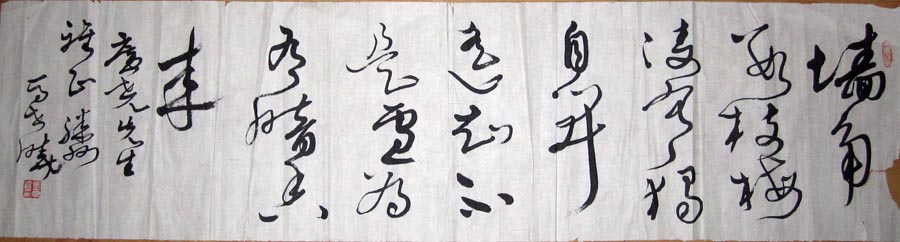 墙角
数枝梅
凌寒独
自开
遥知不
是雪为
有暗香
来
尧先生
雅正 滕州
马世晓